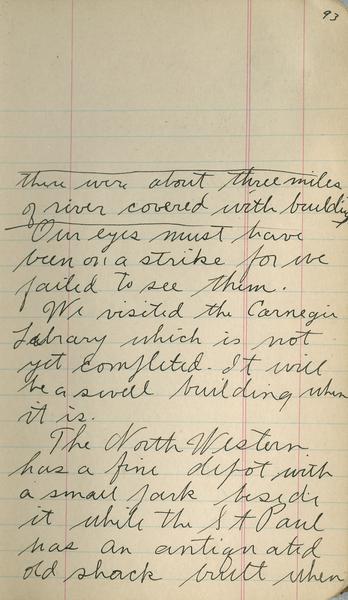 93
there were about three miles
of river covered with buildings
Our eyes must have
been on a strike for we
failed to see them.
We visited the Carnegie
Library which is not
yet completed. It will
be a swell building when
it is.
The North Western
has a fine depot with
a small park beside
it while the St Paul
has an antiquated
old shack built when